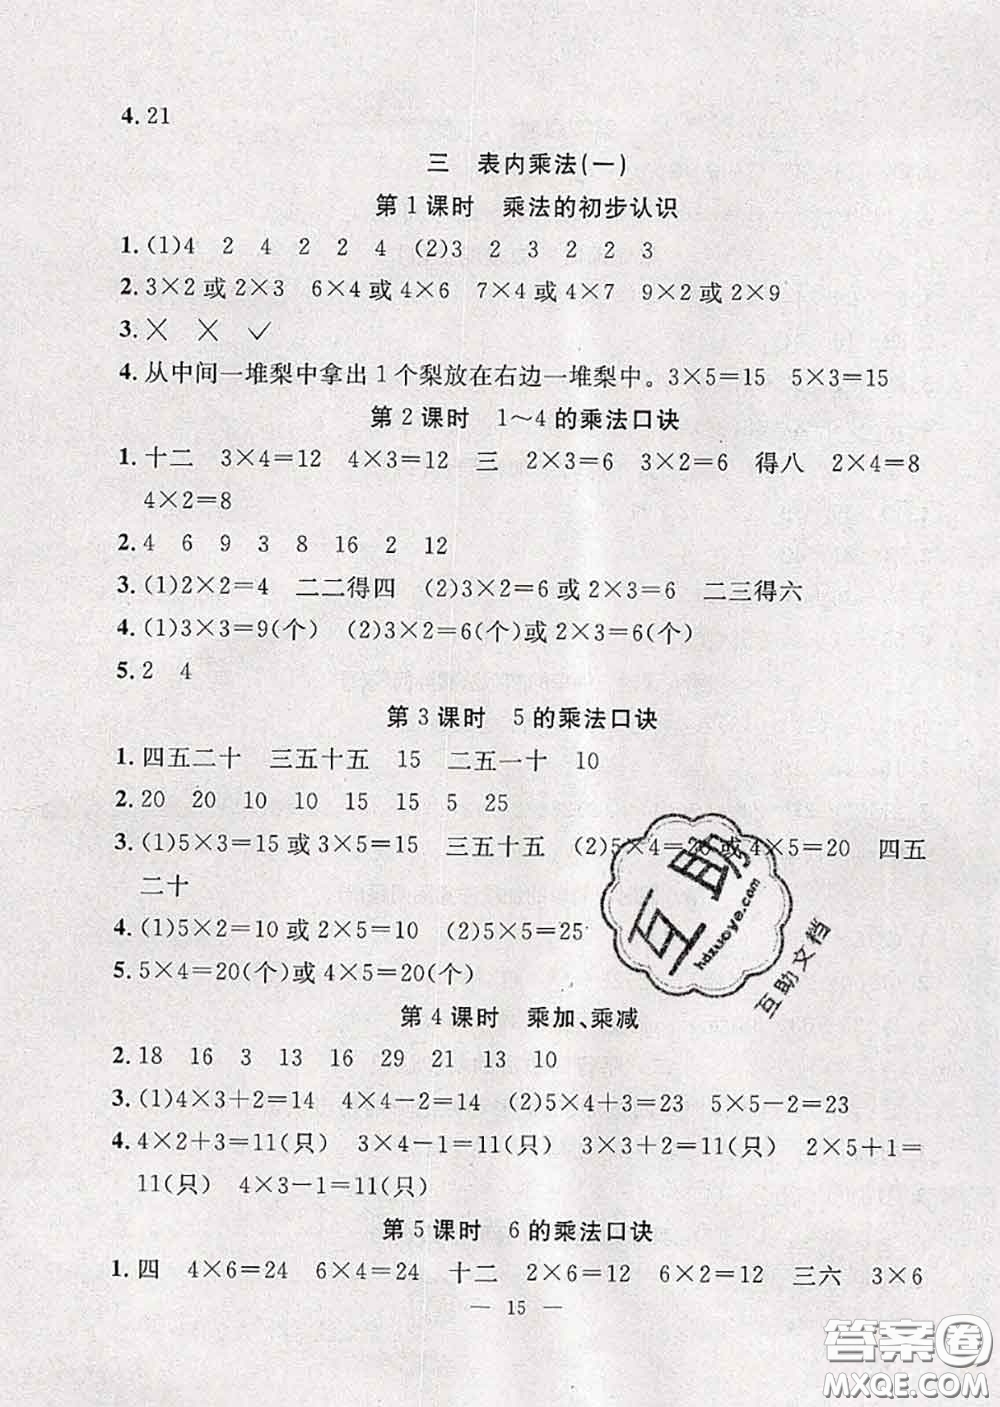 4. 21
三 表内乘法(一)
第1课时 乘法的初步认识
1. (1)4 2 4 2 2 4 (2)3 2 3 2 2 3
2. 3×2或2×3 6×4或4×6 7×4或4×7 9×2或2×9
3. × × ✓
4. 从中间一堆梨中拿出1个梨放在右边一堆梨中。3×5=15 5×3=15
第2课时 1～4的乘法口诀
1. 十二 3×4=12 4×3=12 三 2×3=6 3×2=6 得八 2×4=8
4×2=8
2. 4 6 9 3 8 16 2 12
3. (1)2×2=4 二二得四 (2)3×2=6或2×3=6 二三得六
4. (1)3×3=9(个) (2)3×2=6(个)或2×3=6(个)
5. 2 4
第3课时 5的乘法口诀
1. 四五二十 三五十五 15 二五一十 10
2. 20 20 10 10 15 15 5 25
3. (1)5×3=15或3×5=15 三五十五 (2)5×4=20或4×5=20 四五
二十
4. (1)5×2=10或2×5=10 (2)5×5=25
5. 5×4=20(个)或4×5=20(个)
互助
hdzuoye.com
互助文档
第4课时 乘加、乘减
2. 18 16 3 13 16 29 21 13 10
3. (1)4×3+2=14 4×4-2=14 (2)5×4+3=23 5×5-2=23
4. 4×2+3=11(只) 3×4-1=11(只) 3×3+2=11(只) 2×5+1=
11(只) 4×3-1=11(只)
第5课时 6的乘法口诀
1. 四 4×6=24 6×4=24 十二 2×6=12 6×2=12 三六 3×6
— 15 —
答案圈
MXQE.COM